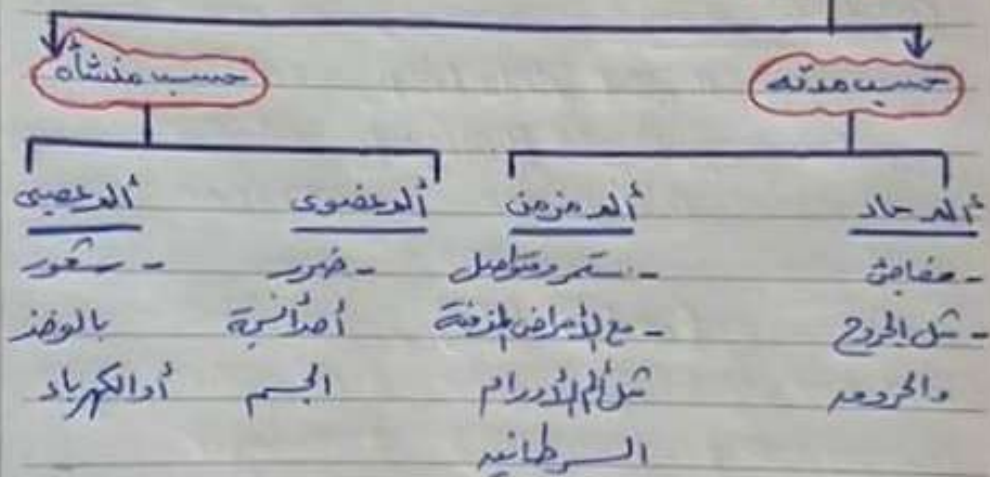 حسب مدته
حسب منشأه
ألم حاد
- مفاجئ
- مثل الجروح
والحروق
ألم مزمن
- مستمر ومتواصل
- مع الأمراض المزمنة
مثل ألم الأورام
السرطانية
ألم عضوي
- ضرر
أحد أنسجة
الجسم
ألم عصبي
- شعور
بالوخز
أو الكهرباء